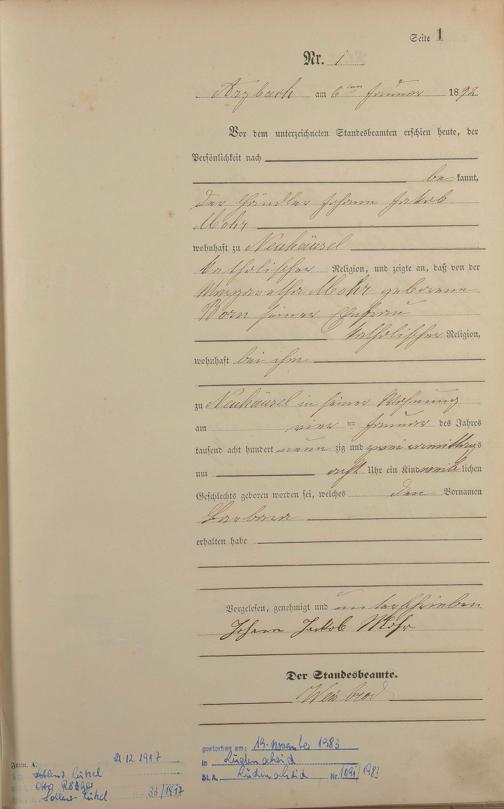 Seite 1
Nr. 1
Arzbach am 6ten Januar 1892
Vor dem unterzeichneten Standesbeamten erschien heute, der
Persönlichkeit nach
be kannt,
der Händler Johann Jakob
Mohr
wohnhaft zu Neuhäusel
katholischer Religion, und zeigte an, daß von der
Margaretha Mohr geborene
Born seiner Ehefrau
katholischer Religion,
wohnhaft bei ihm
zu Neuhäusel in seiner Wohnung
am vier ten Januar des Jahres
tausend acht hundert neun zig und zwei vormittags
um acht Uhr ein Kind weib lichen
Geschlechts geboren worden sei, welches den Vornamen
Barbara
erhalten habe
Vorgelesen, genehmigt und unterschrieben
Johann Jakob Mohr
Der Standesbeamte.
gestorben am: 19. November 1983
in Lüdenscheid
St.A. Lüdenscheid Nr. 1091/1983
Form. A.
21.12.1917
33/1917